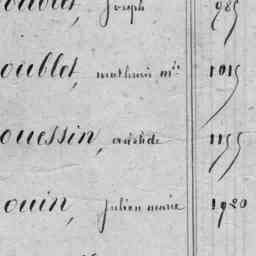 oublet, joseph 985
oublet, mathurin mie 1015
ouessin, aristide 1155
ouin, julien marie 1920